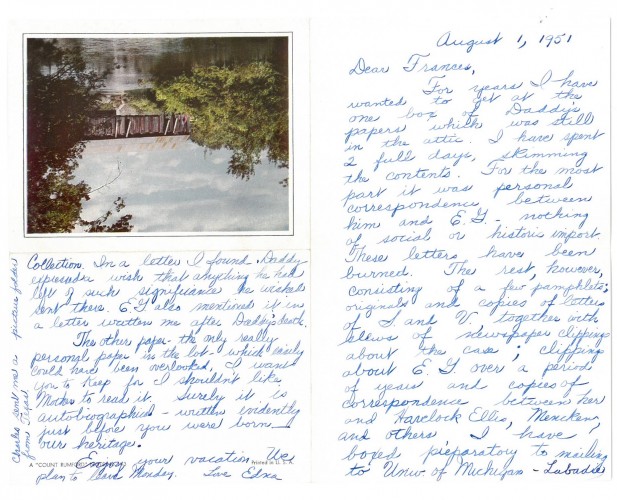 August 1, 1951
Dear Frances,
For years I have
wanted to get at the
one box of Daddy's
papers which was still
in the attic. I have spent
2 full days, skimming
the contents. For the most
part it was personal
correspondence between
him and E.G. - nothing
of social or historic import.
These letters have been
burned. The rest, however,
consisting of a few pamphlets;
originals and copies of letters
of S. and V. together with
slews of newspaper clippings
about the case; clippings
about E.G. over a period
of years and copies of
correspondence between her
and Havelock Ellis, Mencken,
and others I have
boxed preparatory to mailing
to Univ. of Michigan - Labadie
Collection. In a letter I found, Daddy
expressed a wish that anything he had
left of such significance he wished
sent there. E.G. also mentioned it in
a letter written me after Daddy's death.
The other paper - the only really
personal paper in the lot - which easily
could have been overlooked, I want
you to keep for I shouldn't like
to read it. Surely it is
autobiographical - written evidently
just before you were born -
our heritage.
Enjoy your vacation. We
plan to leave Monday. Love Edna
Charles sent me a picture folder
from
A "COUNT Printed in U.S.A.